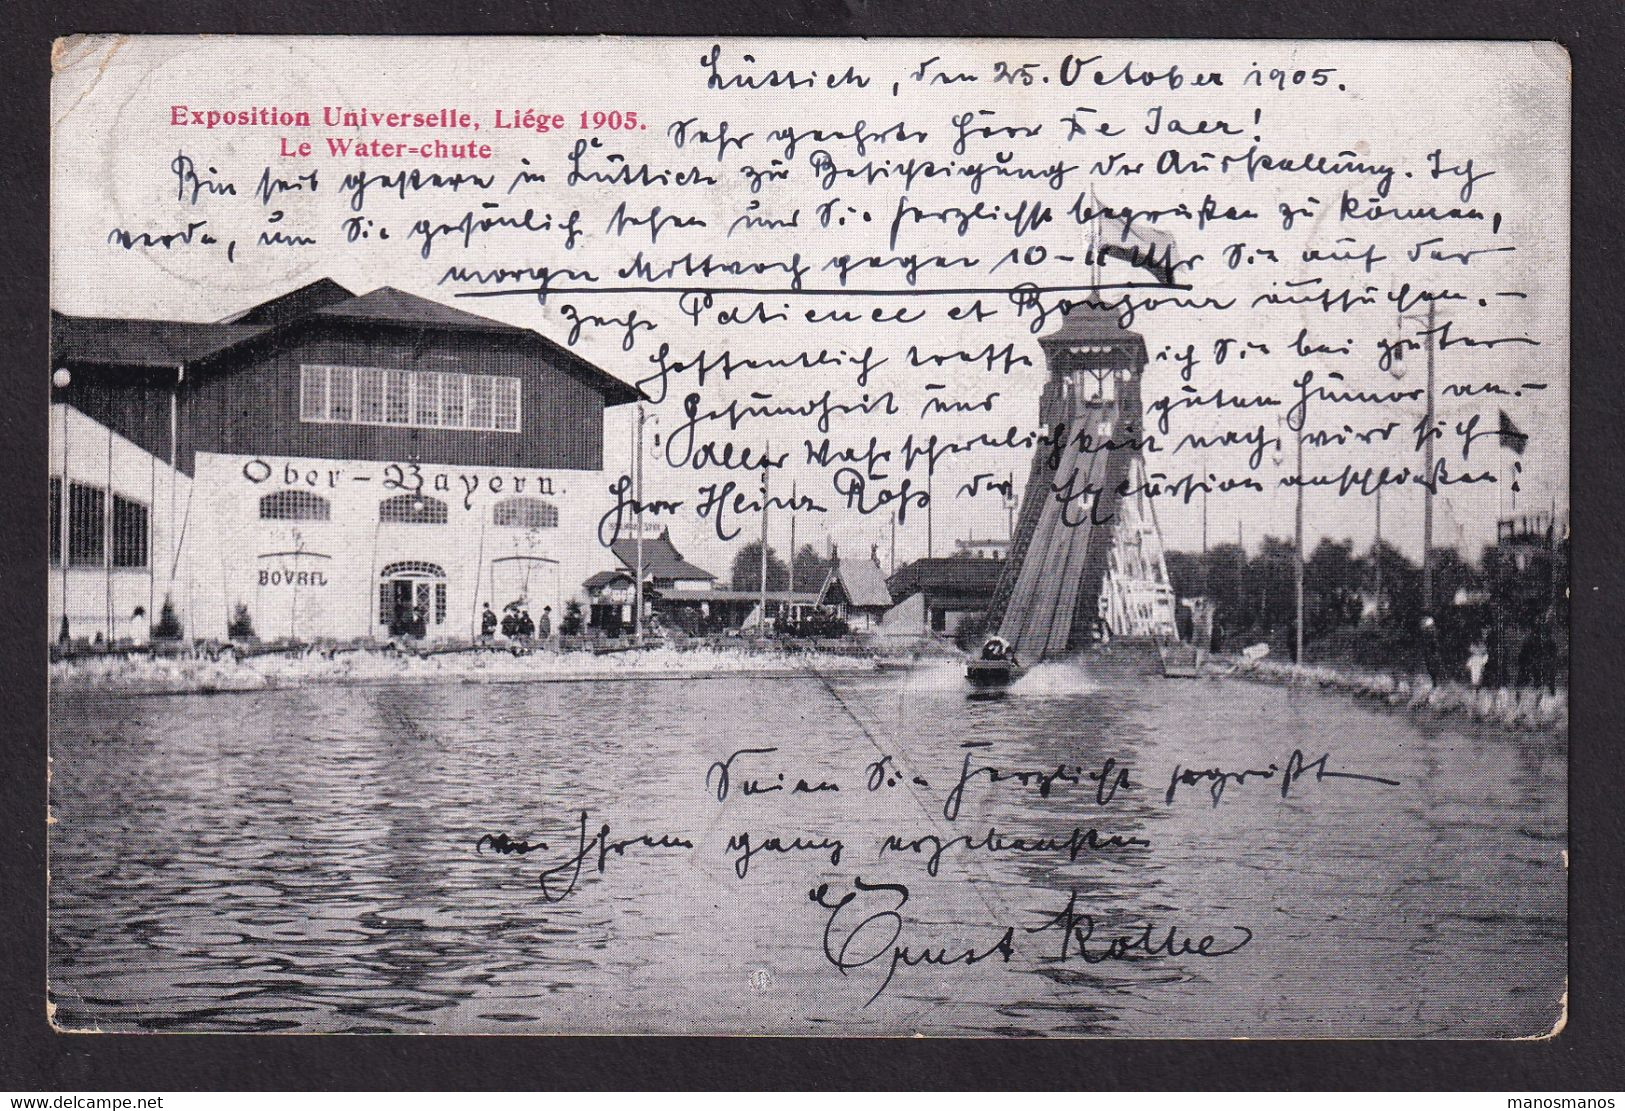 Lüttich, den 25. October 1905.
Exposition Universelle, Liége 1905.
Le Water=chute
Sehr geehrter Herr De Jaer!
Bin seit gestern in Lüttich zur Besichtigung der Ausstellung. Ich
werde, um Sie persönlich sehen und Sie herzlichst begrüßen zu können,
morgen Mittwoch gegen 10-11 Uhr Sie auf der
Zeche Patience et Bonjour aufsuchen.-
Hoffentlich treffe ich Sie bei guter
Gesundheit und guten Humor an.-
Aller Wahrscheinlichkeit nach wird sich
Herr Heinr. der Excursion anschließen!
Ober-Bayern.
BOVRIL
Seien Sie herzlichst gegrüßt
von Ihrem ganz ergebensten
Ernst
manosmanos